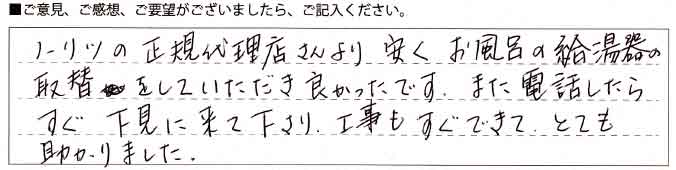 ■ご意見、ご感想、ご要望がございましたら、ご記入ください。
ノーリツの正規代理店さんより安くお風呂の給湯器の
取替をしていただき良かったです。また電話したら
すぐ下見に来て下さり、工事もすぐできて、とても
助かりました。